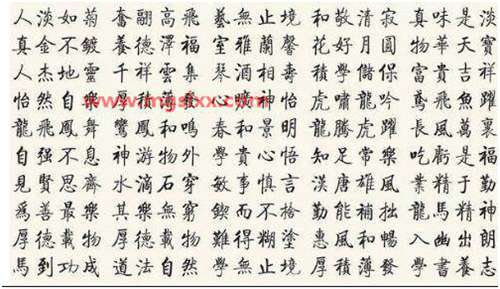 人淡如菊 奮翮高飛 藝無止境 和敬清寂 真味是淡
真金不鍍 養德澤福 室雅蘭馨 花好月圓 物華天寶
人杰地靈 千祥雲集 琴酒相壽 學儲保 富貴吉祥
怡然自樂 厚積薄發 心曠神怡 虎嘯龍吟 鳶飛魚躍
www.mgsfxx.com
龍飛鳳舞 鸞鳳和鳴 春和景明 龍騰虎躍 長風萬裏
自强不息 神游物外 學貴心悟 知足常樂 吃虧是福
見賢思齊 水滴石穿 敏事慎言 漢唐雄風 業精于勤
爲善最樂 其樂無窮 鍥而不捨 勤能補拙 龍馬精神
厚德載物 厚德載物 難得糊塗 惠風和暢 入幽出朗
馬到功成 道法自然 學無止境 厚積薄發 學書養志